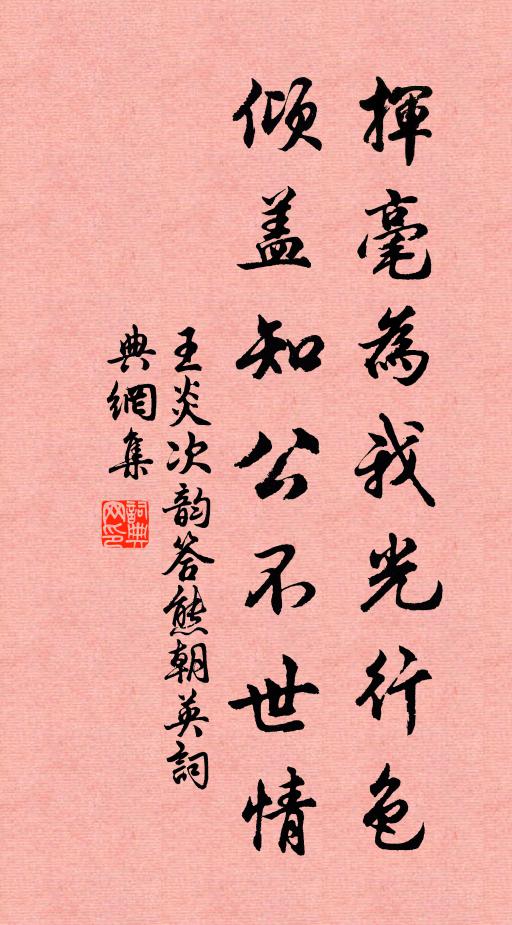 揮毫為我光行色
傾盖知公不世情
王炎次韵答熊朝英詞
典網集
詞典網印